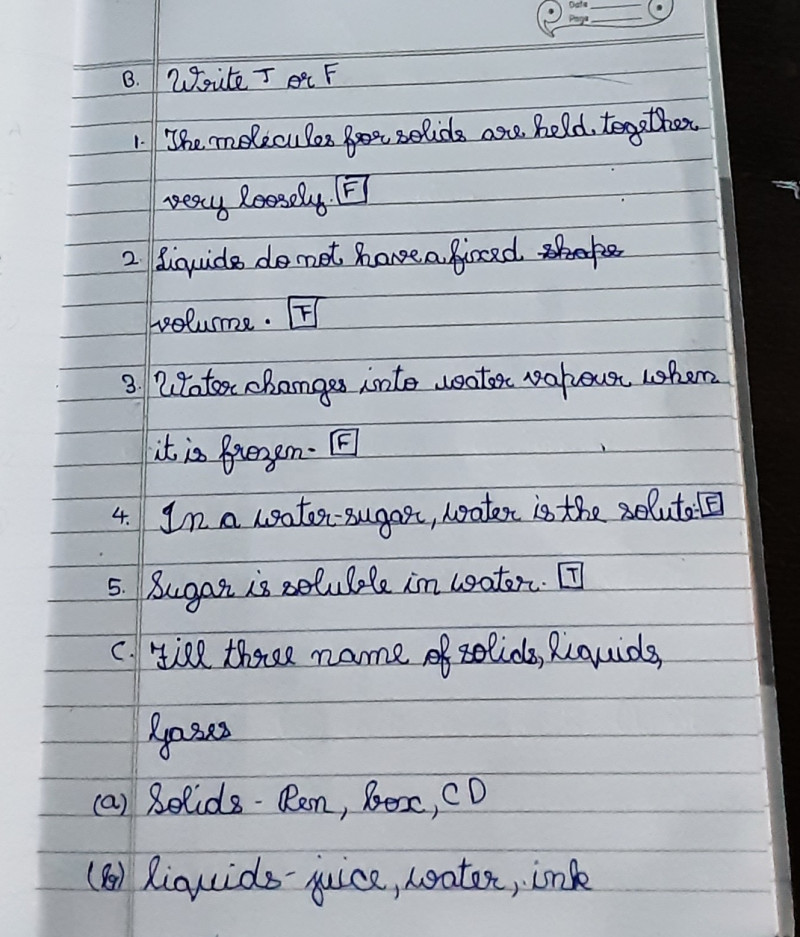 Date
Page
B. Write T or F
1. The molecules for solids are held together
very loosely. F
2. Liquids do not have a fixed shape
volume. T
3. Water changes into water vapour when
it is frozen- F
4. In a water-sugar, water is the solute. F
5. Sugar is soluble in water. T
C. Fill three name of solids, liquids,
gases
(a) Solids - Pen, box, CD
(b) liquids - juice, water, ink